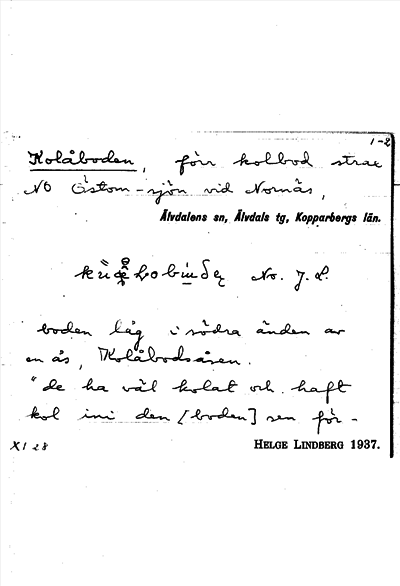 1-2
Kolåboden, förr kolbod strax
NO Östom-sjön vid Nornäs,
Älvdalens sn, Älvdals tg, Kopparbergs län.
No. J. L.
boden låg i södra änden av
en ås, Kolåbodsåsen.
"de ha väl kolat och haft
kol ini den [boden] sen för-
XI 28
HELGE LINDBERG 1937.